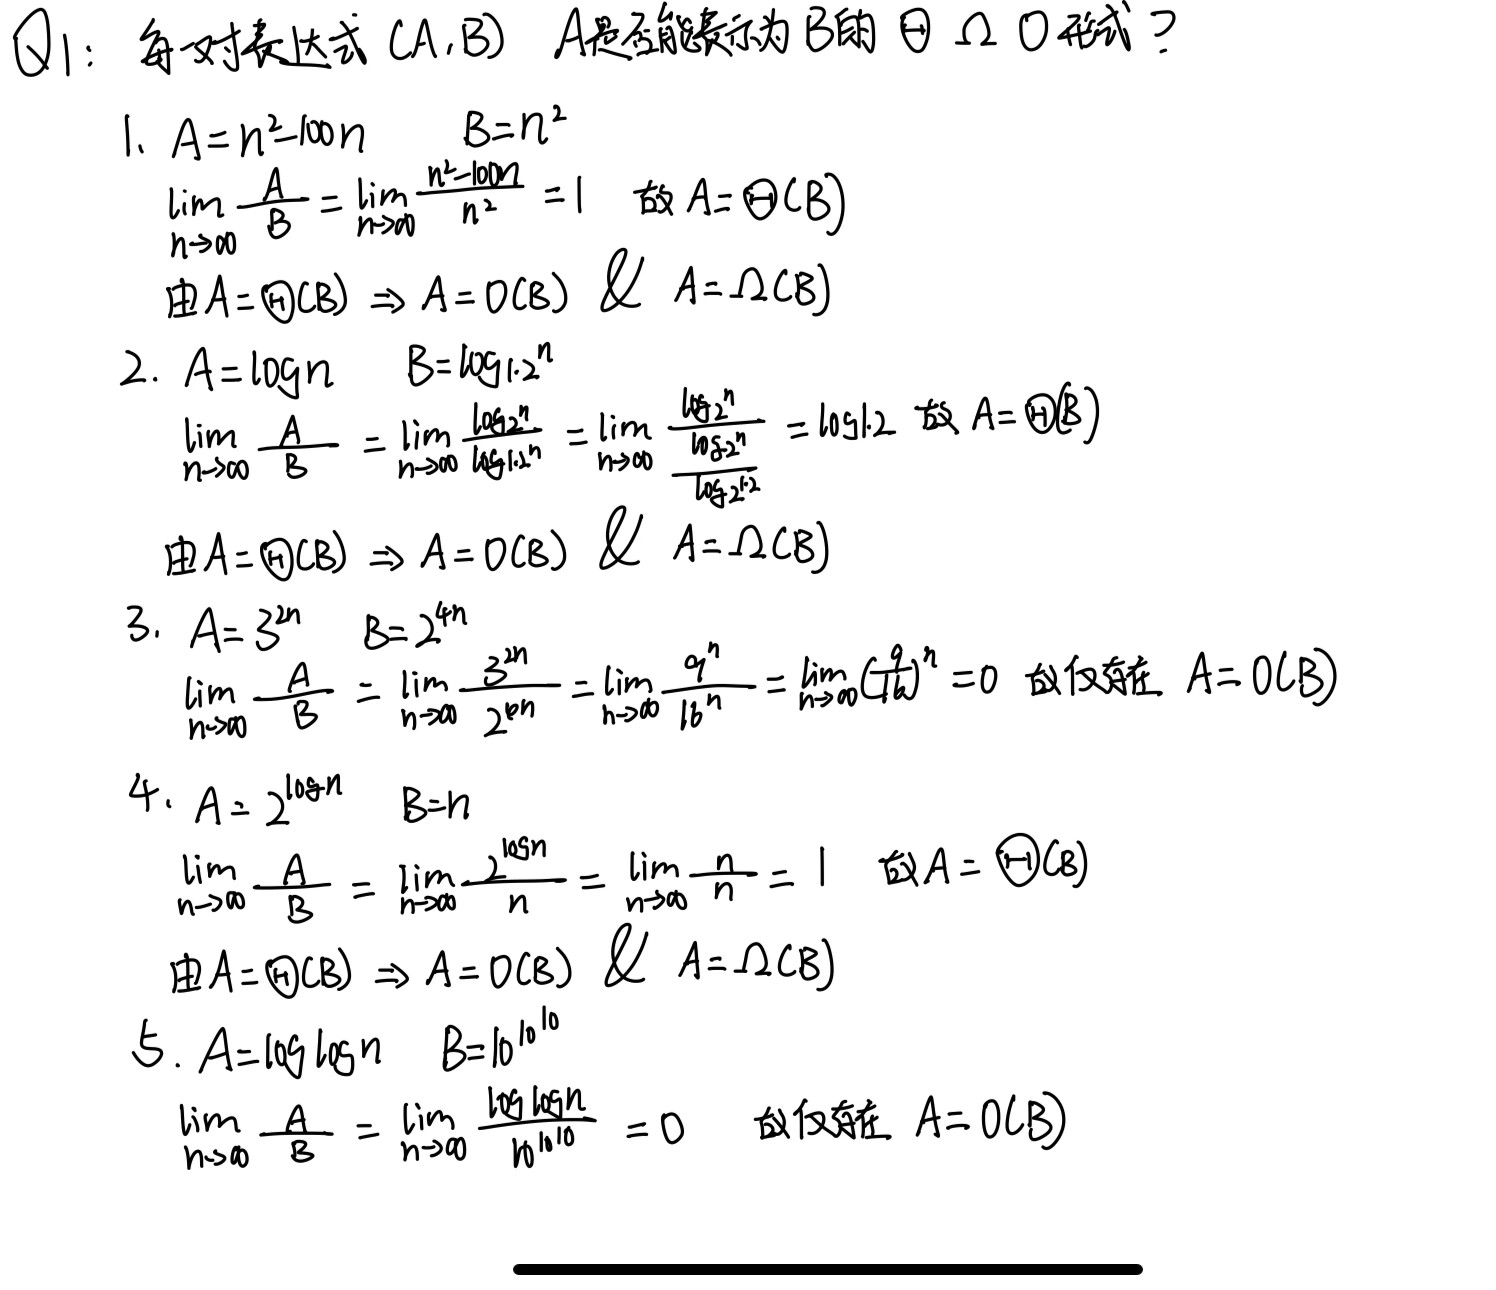 Q1: 每一对表达式 (A,B) A是否能表示为 B的 Θ Ω O 形式?
1. A=n²-100n B=n²
lim n→∞ A/B = lim n→∞ (n²-100n)/n² = 1 故 A=Θ(B)
由A=Θ(B) ⇒ A=O(B) & A=Ω(B)
2. A=logn B=log₁.₂ⁿ
lim n→∞ A/B = lim n→∞ log₂ⁿ/log₁.₂ⁿ = lim n→∞ log₂ⁿ/(log₂ⁿ/log₂^1.2) = log1.2 故 A=Θ(B)
由A=Θ(B) ⇒ A=O(B) & A=Ω(B)
3. A=3^2n B=2^4n
lim n→∞ A/B = lim n→∞ 3^2n/2^4n = lim n→∞ 9ⁿ/16ⁿ = lim n→∞ (9/16)ⁿ = 0 故仅存在 A=O(B)
4. A=2^logn B=n
lim n→∞ A/B = lim n→∞ 2^logn/n = lim n→∞ n/n = 1 故A=Θ(B)
由A=Θ(B) ⇒ A=O(B) & A=Ω(B)
5. A=loglogn B=10^10^10
lim n→∞ A/B = lim n→∞ loglogn/10^10^10 = 0 故仅存在 A=O(B)